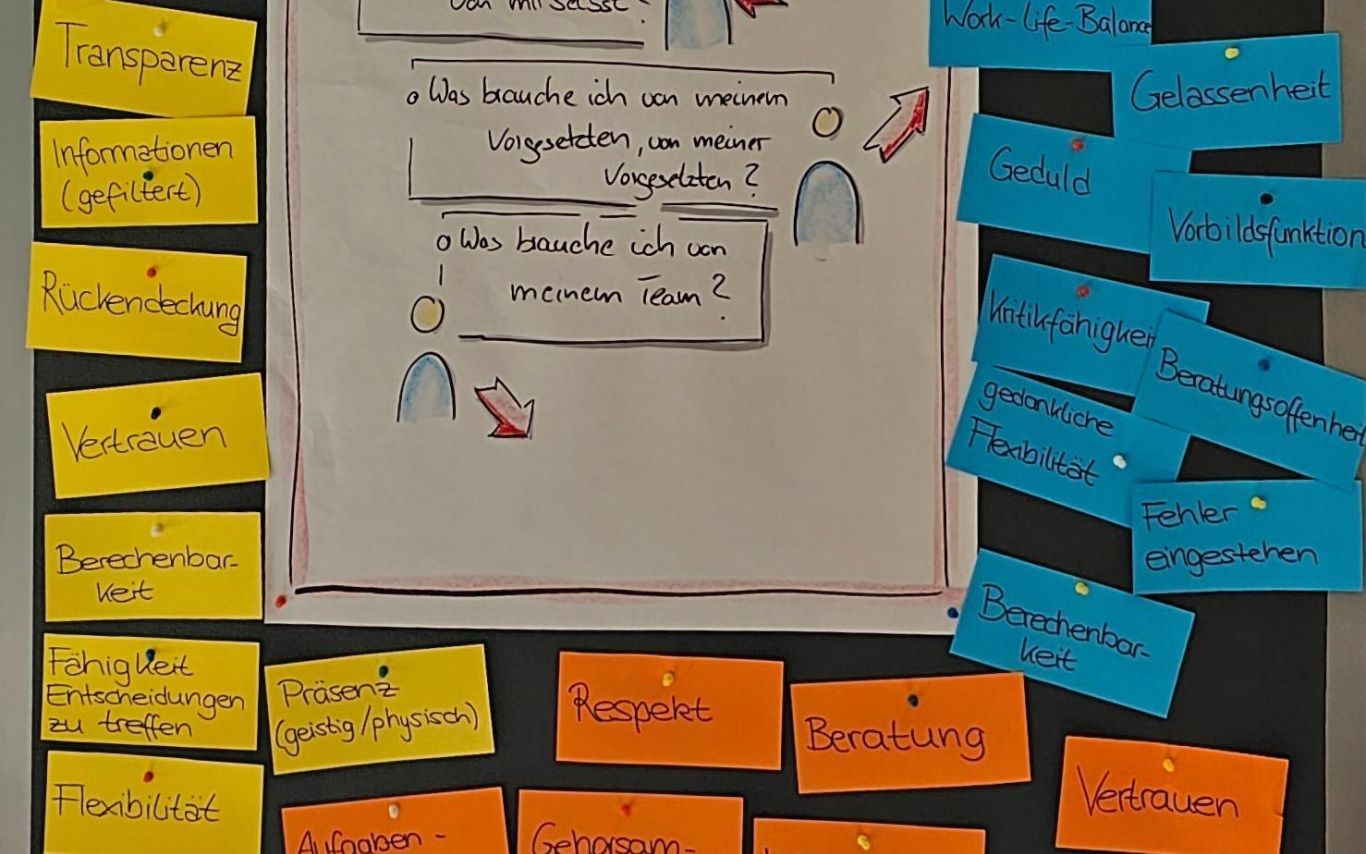 Transparenz
Informationen
(gefiltert)
Rückendeckung
Vertrauen
Berechenbar-
keit
Fähigkeit
Entscheidungen
zu treffen
Flexibilität
Präsenz
(geistig/physisch)
von mir selbst?
o Was brauche ich von meinem
Vorgesetzten, von meiner
Vorgesetzten?
o Was brauche ich von
meinem Team?
Work-Life-Balance
Gelassenheit
Geduld
Vorbildsfunktion
Kritikfähigkeit
Beratungsoffenheit
gedankliche
Flexibilität
Fehler
eingestehen
Berechenbar-
keit
Respekt
Beratung
Vertrauen
Aufgaben-
Gehorsam-